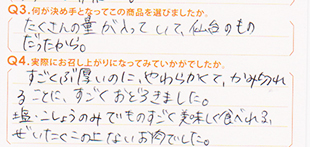 Q3.何が決め手となってこの商品を選びましたか。
たくさんの量が入っていて、仙台のもの
だったから。
Q4.実際にお召し上がりになってみていかがでしたか。
すごくぶ厚いのに、やわらかくて、かみ切れ
ることに、すごくおどろきました。
塩・こしょうのみでものすごく美味しく食べれる、
ぜいたくこの上ないお肉でした。